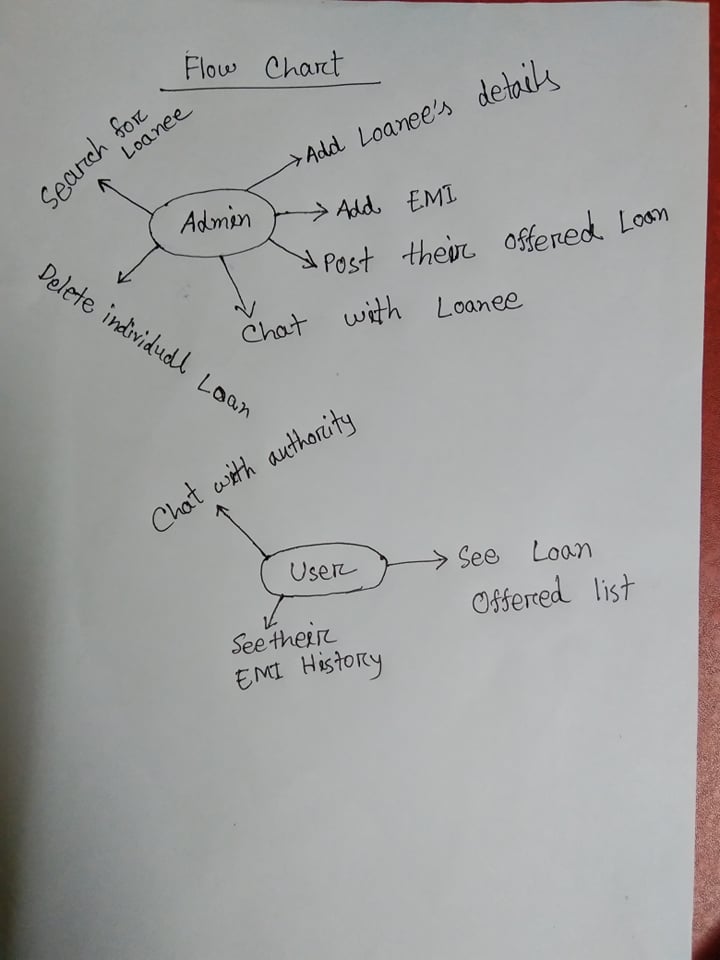 Flow Chart
Search for
Loanee
Add Loanee's details
Admin
Add EMI
Post their offered Loan
Chat with Loanee
Delete individual Loan
Chat with authority
User
See Loan
Offered list
See their
EMI History